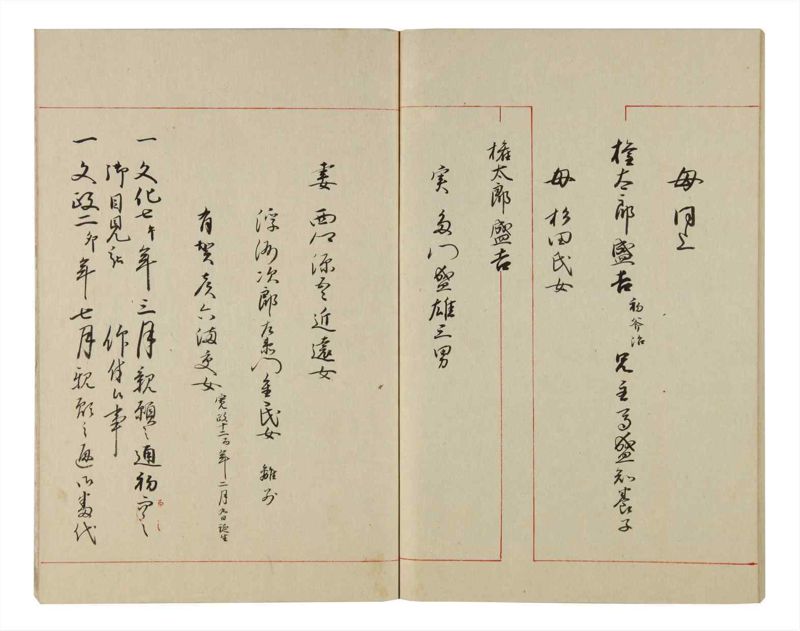 母同上
権太郎盛吉 初斧治 兄主馬盛知養子
母 杉田氏女
権太郎盛吉
実 多門盛雄三男
妻 西川源吾近遠女
浮洲次郎左衛門重民女 離別
有賀彦六満吏女 寛政十二年二月九日誕生
一 文化七午年三月親願之通初而之
御目見被 仰付候事
一 文政二卯年七月親願之通御番代